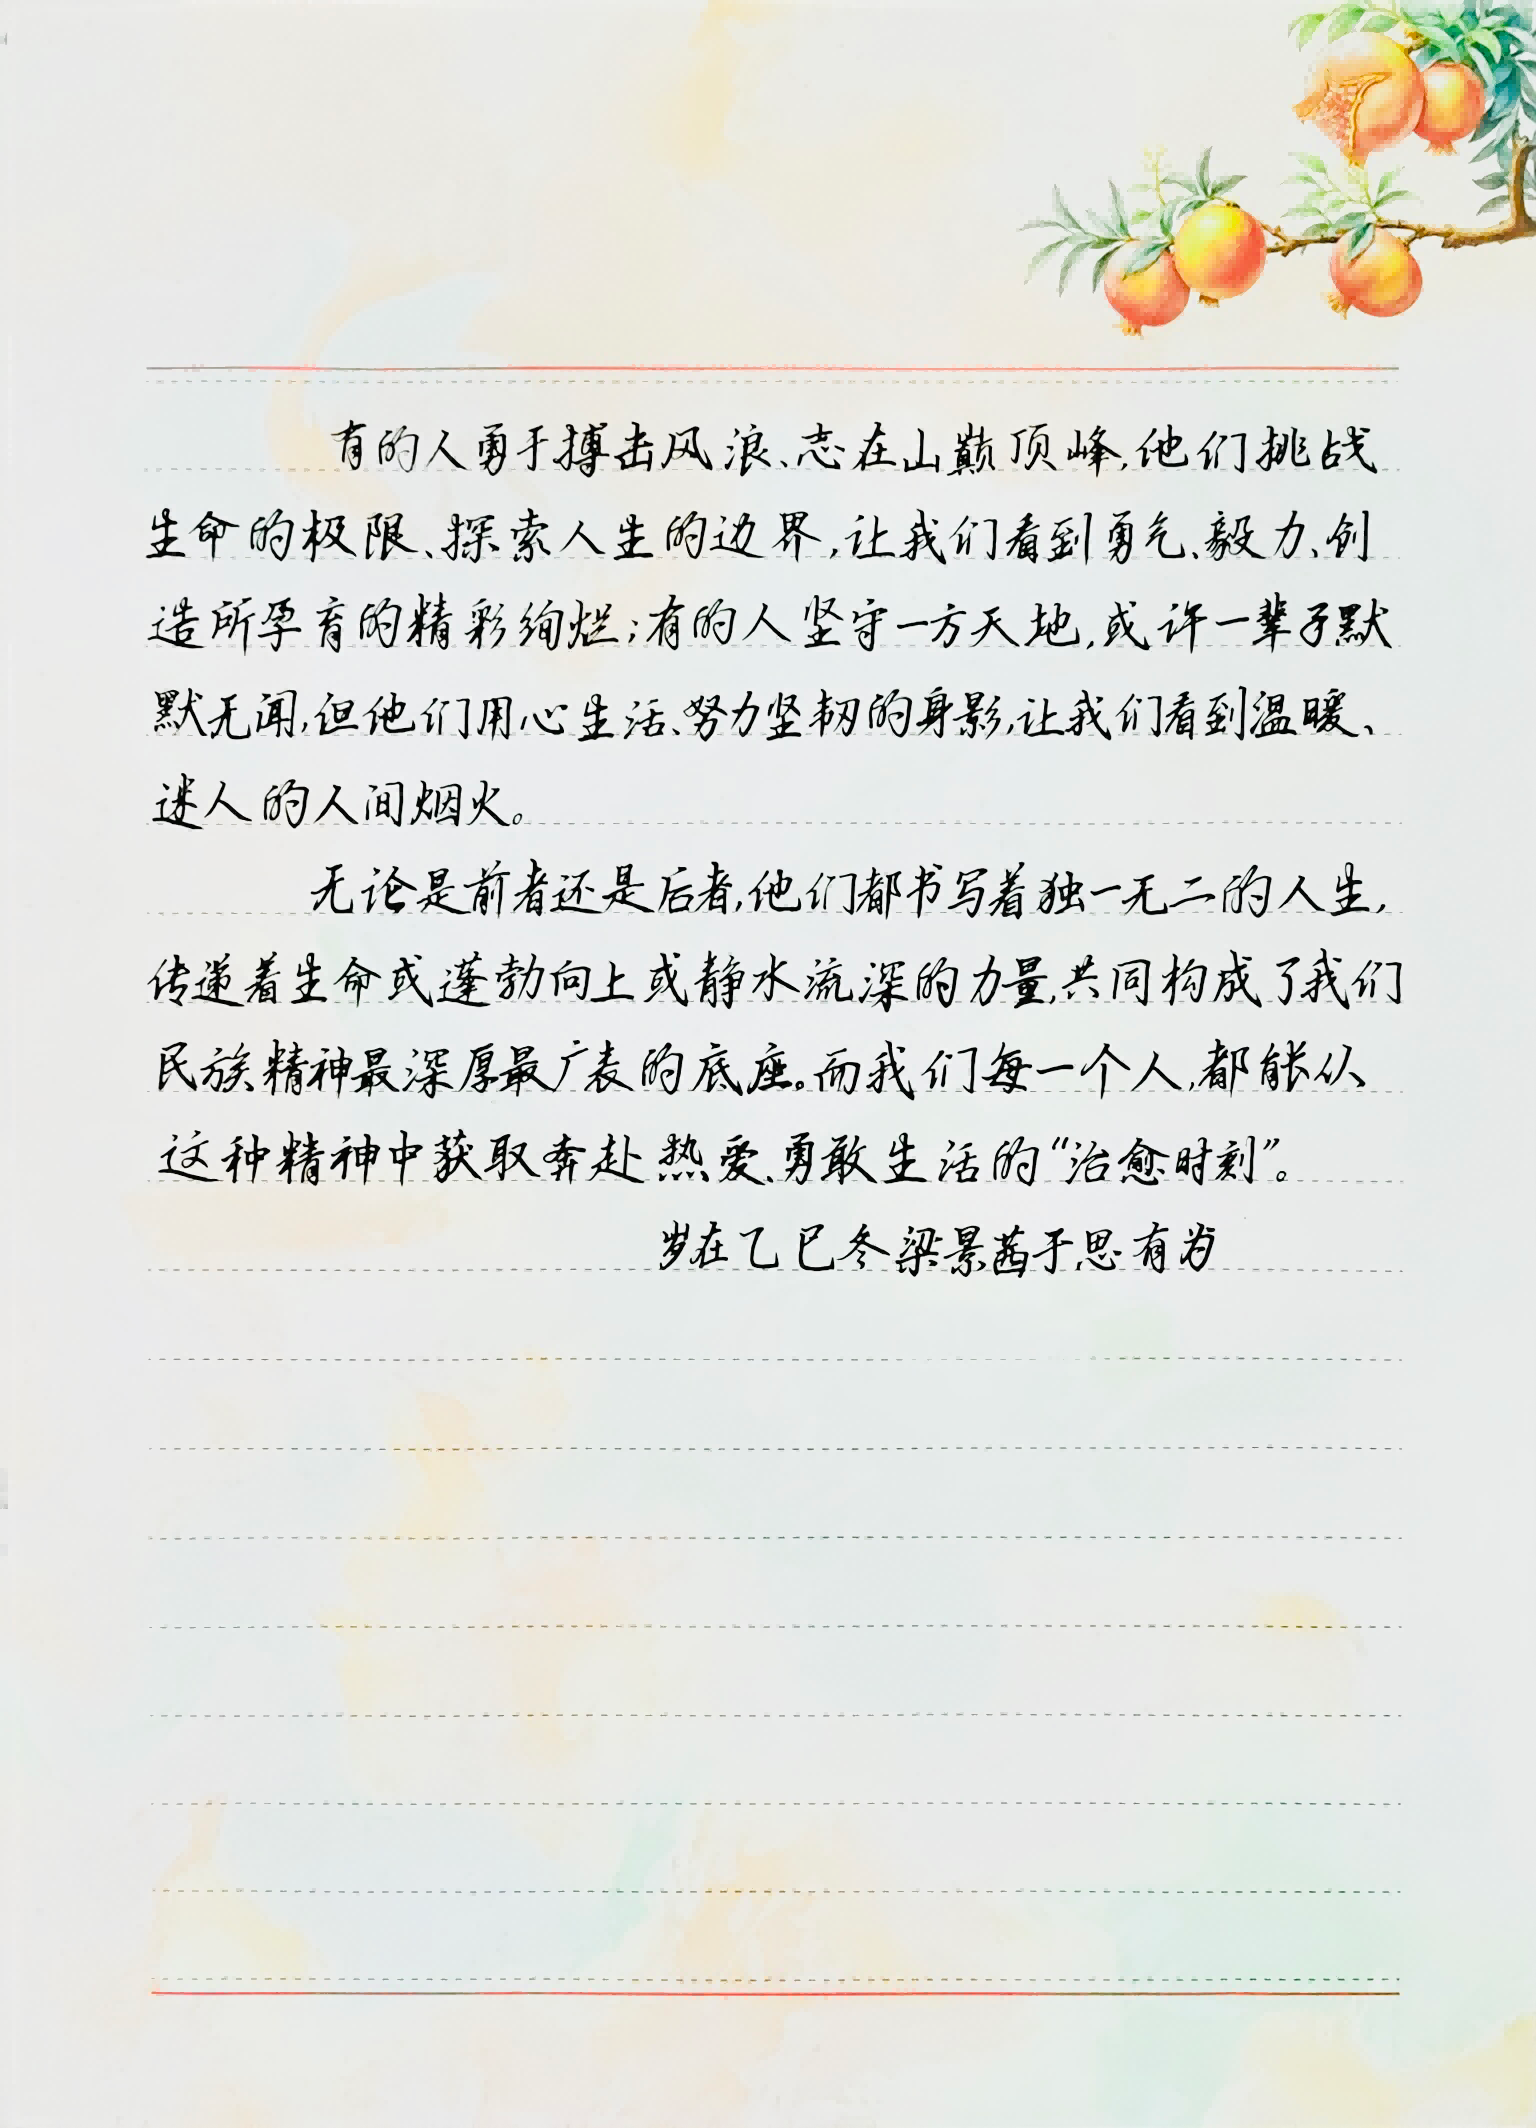 有的人勇于搏击风浪、志在山巅顶峰,他们挑战
生命的极限、探索人生的边界,让我们看到勇气、毅力、创
造所孕育的精彩绚烂;有的人坚守一方天地,或许一辈子默
默无闻,但他们用心生活、努力坚韧的身影,让我们看到温暖、
迷人的人间烟火。
无论是前者还是后者,他们都书写着独一无二的人生,
传递着生命或蓬勃向上或静水流深的力量,共同构成了我们
民族精神最深厚最广袤的底座。而我们每一个人,都能从
这种精神中获取奔赴热爱、勇敢生活的“治愈时刻”。
岁在乙巳冬梁景茜于思有为